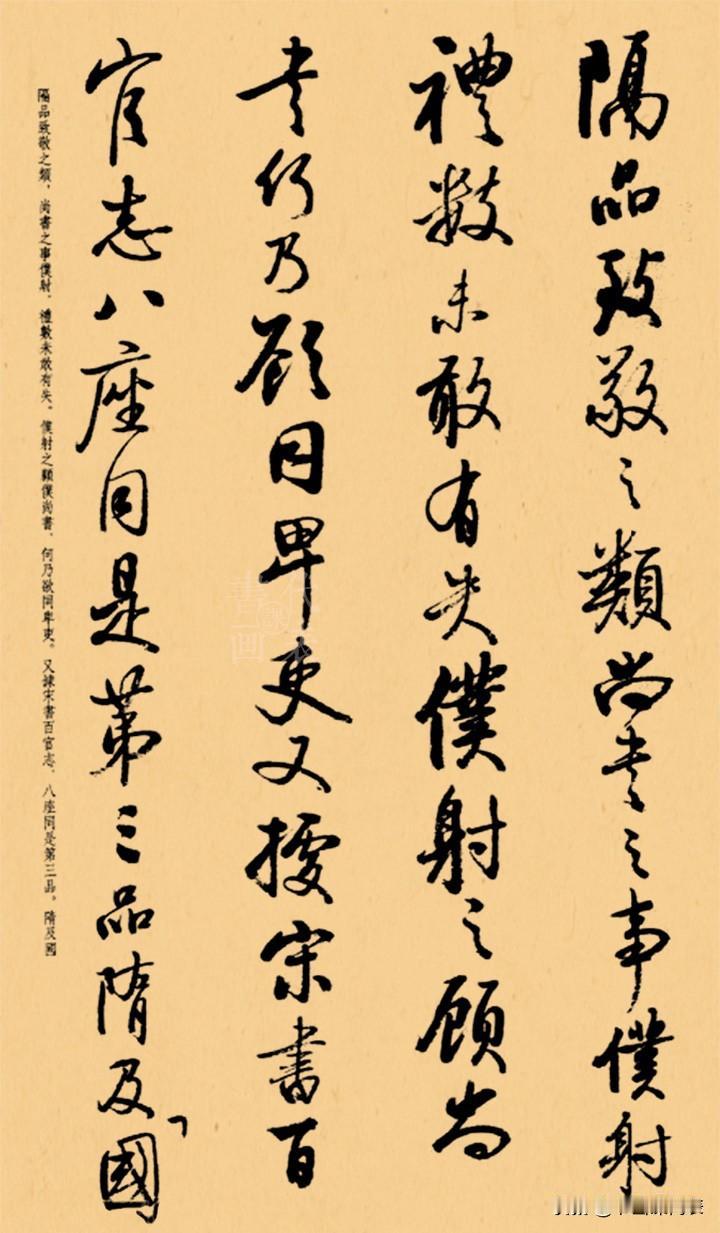 隔品致敬之類尚書之事僕射
禮數未敢有失僕射之顧尚
書何乃欲同卑吏又據宋書百
官志八座同是第三品隋及國
隔品致敬之類，尚書之事僕射，禮數未敢有失。僕射之顧僕尚書，何乃欲同卑吏。又據宋書百官志，八座同是第三品。隋及國